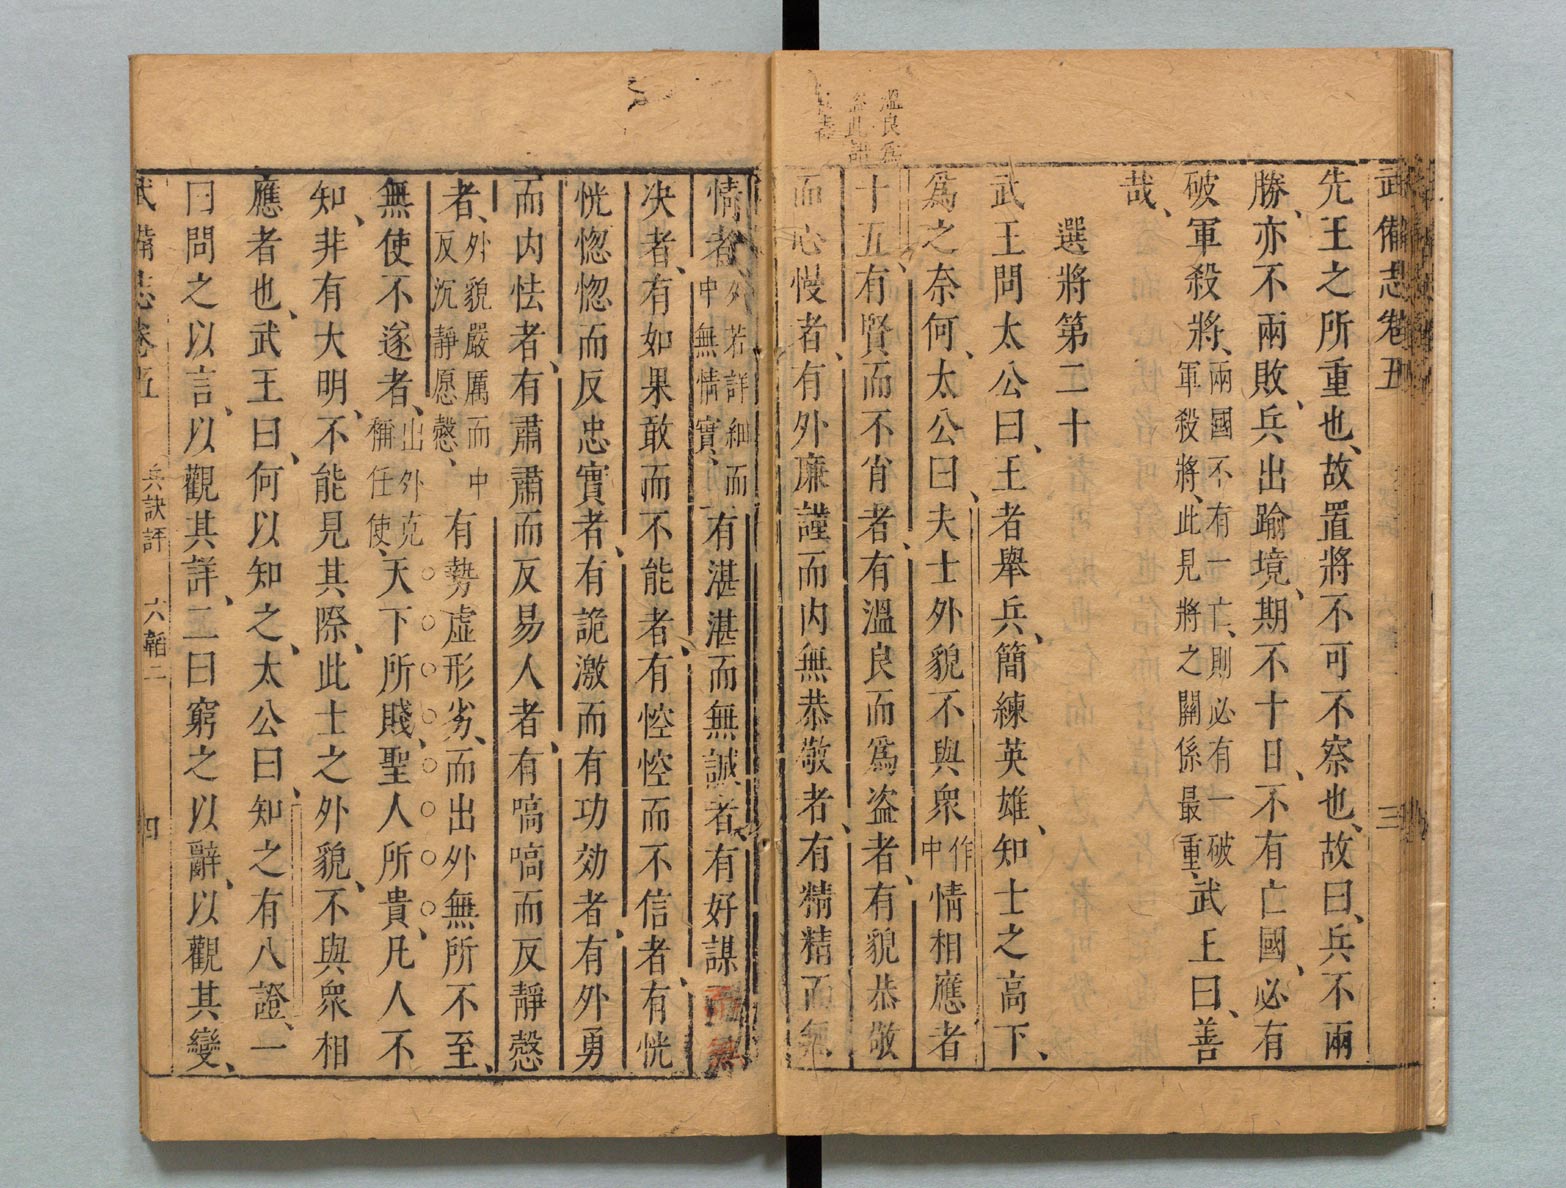 武備志卷五
三
先王之所重也、故置將不可不察也、故曰、兵不兩
勝、亦不兩敗、兵出踰境、期不十日、不有亡國、必有
破軍殺將、兩國不有一亡、則必有一破軍殺將、此見將之關係最重、武王曰、善
哉、
選將第二十
武王問太公曰、王者舉兵、簡練英雄、知士之高下、
為之奈何、太公曰、夫士外貌不與衆作中情相應者
十五、有賢而不肖者、有溫良而為盗者、有貌恭敬
而心慢者、有外廉謹而内無恭敬者、有精精而無
溫良為
盗此
情者、外若詳細而中無情實、有湛湛而無誠者、有好謀而無
决者、有如果敢而不能者、有悾悾而不信者、有恍
恍惚惚而反忠實者、有詭激而有功効者、有外勇
而内怯者、有肅肅而反易人者、有嗃嗃而反靜慤
者、外貌嚴厲而中反沉靜愿慤、有勢虛形劣、而出外無所不至、
無使不遂者、出外克稱任使、天下所賤、聖人所貴、凡人不
知、非有大明、不能見其際、此士之外貌、不與衆相
應者也、武王曰、何以知之、太公曰、知之有八證、一
曰問之以言、以觀其詳、二曰窮之以辭、以觀其變、
武備志卷五
兵訣評
六韜二
四